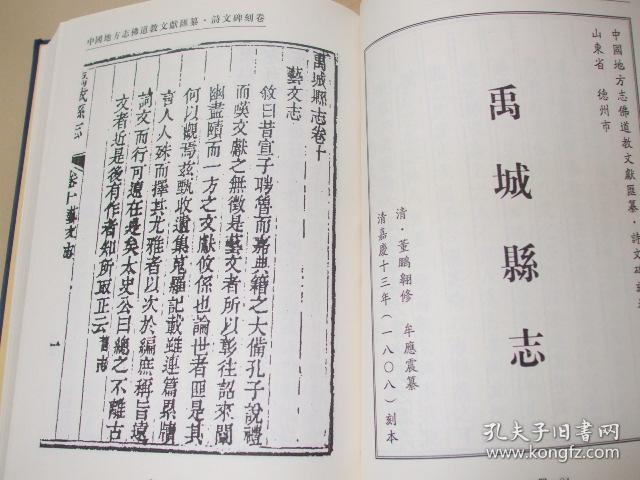 中國地方志佛道教文獻匯纂·詩文碑刻卷
禹城縣志卷十
藝文志
敘曰昔宣子聘魯而嘉典籍之大備孔子說禮
而嘆文獻之無徵是藝文者所以彰往詔來闡
幽盡賾而一方之文獻攸係也論世者匪是其
何以觀焉兹甄收遺集蒐羅記載雖連篇累牘
言人人殊而擇其尤雅者以次於編庶稱旨遠
詞文而行可遠在是矣太史公曰總之不離古
文者近是後有作者知所取正云舊志
禹城縣志
卷十藝文志
一
中國地方志佛道教文獻匯纂·詩文碑刻
山東省 德州市
禹城縣志
清·董鵬翱修 牟應震纂
清嘉慶十三年(一八〇八)刻本
孔夫子旧书网
www.kongfz.com